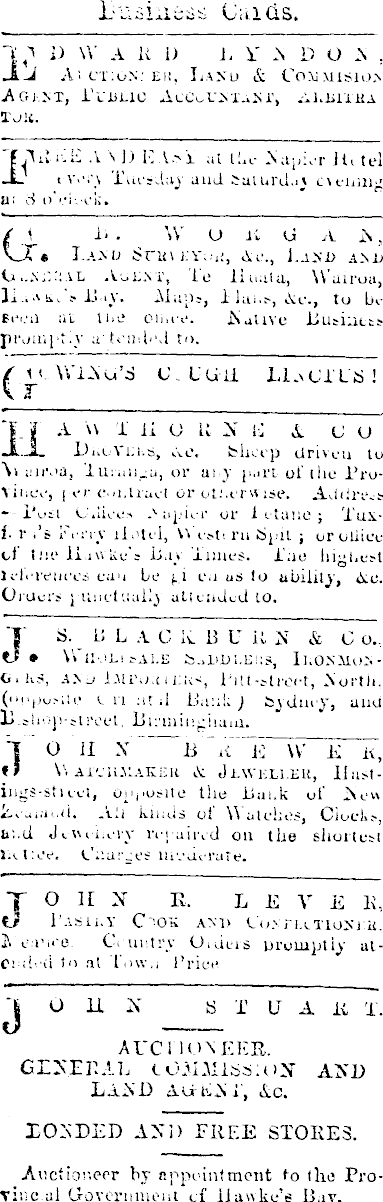 Business Cards.
EDWARD LYNDON,
AUCTIONEER, LAND & COMMISION
AGENT, PUBLIC ACCOUNTANT, ARBITRA
TOR.
FREE AND EASY at the Napier Hotel
every Tuesday and Saturday evening
at 8 o'clock.
G. B. WORGAN,
LAND SURVEYOR, &c., LAND AND
GENERAL AGENT, Te Huata, Wairoa,
Hawke's Bay. Maps, Plans, &c., to be
seen at the office. Native Business
promptly attended to.
GOWING'S COUGH LINCTUS!
HAWTHORNE & CO
DROVERS, &c. Sheep driven to
Wairoa, Turanga, or any part of the Pro-
vince, per contract or otherwise. Address
— Post Offices Napier or Petane; Tux-
ford's Ferry Hotel, Western Spit; or office
of the Hawke's Bay Times. The highest
references can be given as to ability, &c.
Orders punctually attended to.
J. S. BLACKBURN & Co.,
WHOLESALE SADDLERS, IRONMON-
GERS, AND IMPORTERS, Pitt-street, North,
(opposite Oriental Bank) Sydney, and
Bishop-street, Birmingham.
JOHN BREWER,
WATCHMAKER & JEWELLER, Hast-
ings-street, opposite the Bank of New
Zealand. All kinds of Watches, Clocks,
and Jewellery repaired on the shortest
notice. Charges moderate.
JOHN R. LEVER,
PASTRY COOK AND CONFECTIONER.
Meanee. Country Orders promptly at-
ended to at Town Price
JOHN STUART.
AUCTIONEER.
GENERAL COMMISSION AND
LAND AGENT, &c.
BONDED AND FREE STORES.
Auctioneer by appointment to the Pro-
vincial Government of Hawke's Bay.